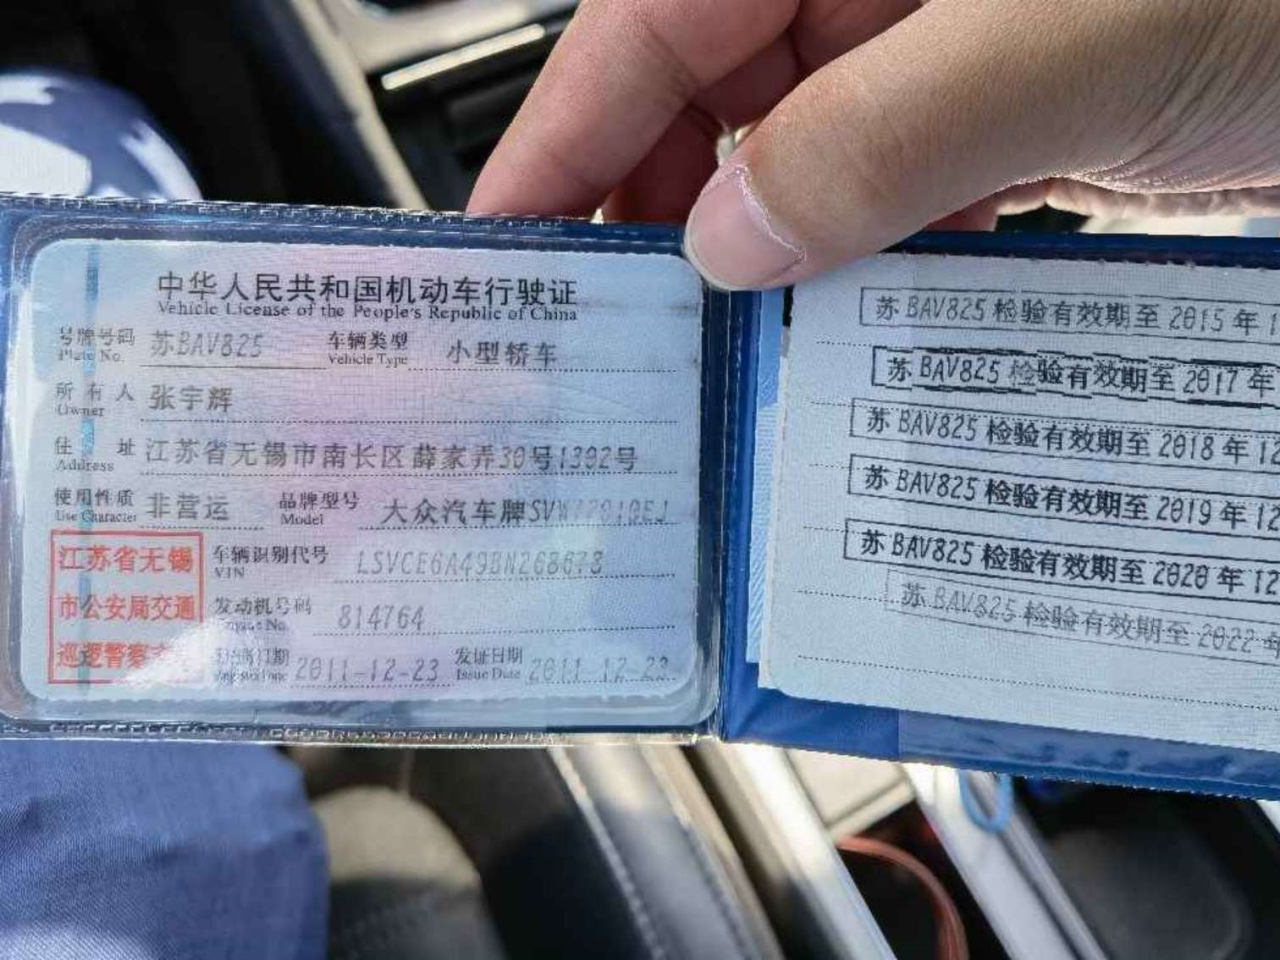 中华人民共和国机动车行驶证
Vehicle License of the People's Republic of China
号牌号码 苏BAV825 车辆类型 小型轿车
Plate No. Vehicle Type
所有人 张宇辉
Owner
住址 江苏省无锡市南长区薛家弄30号1302号
Address
使用性质 非营运 品牌型号 大众汽车牌SVW
Use Character Model
江苏省无锡
市公安局交通
巡逻警察
车辆识别代号 LSVCE6A49BN268673
VIN
发动机号码 814764
Engine No.
注册日期 2011-12-23 发证日期 2011-12-23
Issue Date
苏BAV825 检验有效期至 2015 年 1
苏BAV825 检验有效期至 2017 年
苏BAV825 检验有效期至 2018 年 12
苏BAV825 检验有效期至 2019 年 12
苏BAV825 检验有效期至 2020 年 12
苏BAV825 检验有效期至 2022 年